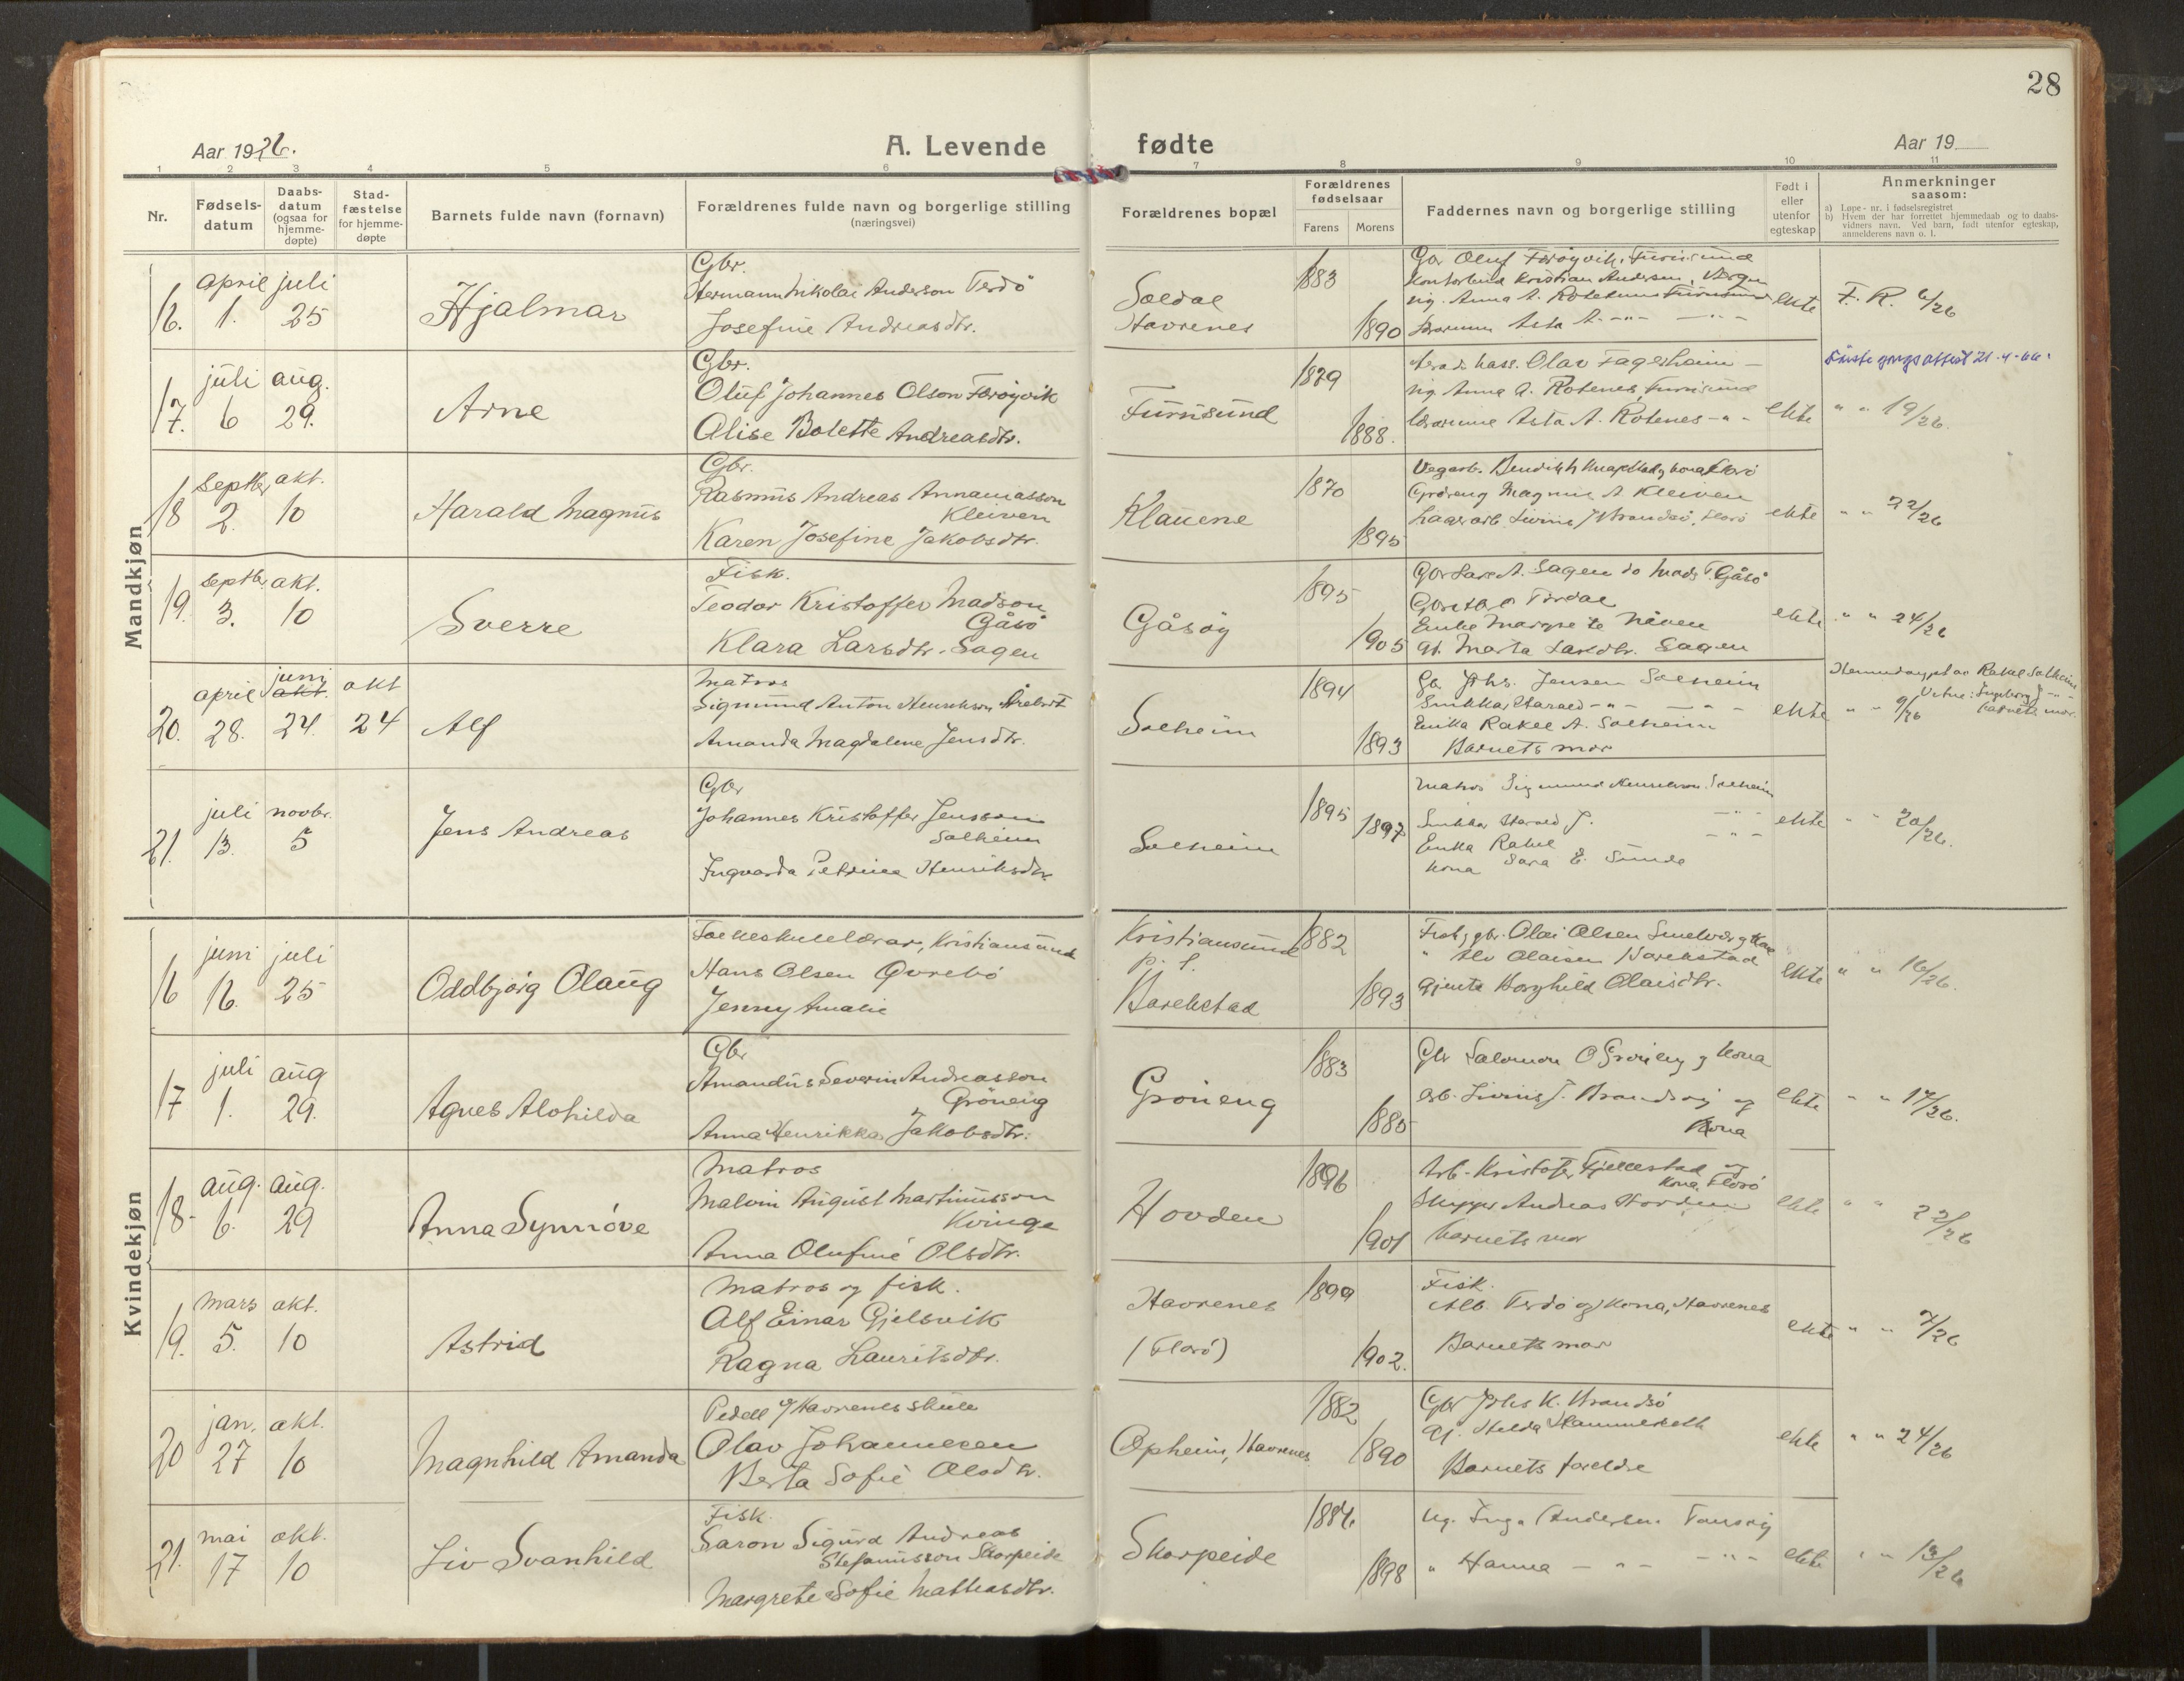 28
Aar 1926.
A. Levende fødte
Aar 19
1 2 3 4 5 6 7 8 9 10 11
Nr.
Fødsels-
datum
Daabs-
datum
(ogsaa for
hjemme-
døpte)
Stad-
fæstelse
for hjemme-
døpte
Barnets fulde navn (fornavn)
Forældrenes fulde navn og borgerlige stilling
(næringsvei)
Forældrenes bopæl
Forældrenes
fødselsaar
Farens Morens
Faddernes navn og borgerlige stilling
Født i
eller
utenfor
egteskap
Anmerkninger
saasom:
a) Løpe-nr. i fødselsregistret
b) Hvem der har forrettet hjemmedaab og to daabs-
vidners navn. Ved barn, født utenfor egteskap,
anmelderens navn o. l.
Mandkjøn
16. april 1. juli 25
Hjalmar
Gbr.
Hermann Nikolai Anderson Terdø
Josefine Andreasdtr.
Soldal
Havrenes
1883
1890
ekte
F. R. 6/26
17. juli 6 aug. 29.
Arne
Gbr.
Oluf Johannes Olson Færøyvik
Alise Bolette Andreasdtr.
Furusund
1879
1888.
Olav Fagerheim
pig. Anna A. Rotenes, Furusund
lærarinne Asta A. Rotenes -"-
ekte
" " 19/26.
21-4-66
18 septbr 2. akt. 10
Harald Magnus
Gbr.
Rasmus Andreas Annaniasson
Kleiven
Karen Josefine Jakobsdtr.
Klauene
1870
1895
Magnus A. Kleiven
ekte
" " 22/26
19. septbr 3. akt. 10
Sverre
Fisk.
Teodor Kristoffer Madson
Gåsö
Klara Larsdtr. Sagen
Gåsöy
1895
1905
Gbr Lars A. Sagen do Mads T. Gåsö
Enke Margrete Nåven
gt. Marta Larsdtr. Sagen
ekte
" " 24/26
20. april 28. juni akt. 24. okt 24
Alf
Matros
Sigmund Anton Henrikson
Amanda Magdalene Jensdtr.
Solheim
1894
1893
Gbr Johs. Jensen Solheim
Harald -"- -"-
Rakel A. Solheim
Barnets mor
ekte
" " 9/26
Rakel Solheim
Ingeborg J -"-
barnets mor.
21. juli 13. novbr. 5
Jens Andreas
Gbr
Johannes Kristoffer Jensson
Solheim
Ingvarda Petrine Henriksdtr.
Solheim
1895 1897
Matros Sigmund Henrikson Solheim
Harald J. -"-
Rakel -"-
kona Sara E. Sunde
ekte
" " 20/26.
Kvindekjøn
16 juni 16. juli 25
Oddbjörg Olaug
Folkeskulelærar, Kristiansund
Hans Olsen Övrebö
Jenny Amalie
Kristiansund
p. t.
Barekstad
1882
1893
Olai Olsen
Olaisen Barekstad
gjenta Borghild Olaisdtr.
ekte
" " 16/26.
17 juli 1. aug 29.
Agnes Alohilda
Gbr
Amandus Severin Andreasson
Gröneng
Anna Henrikka Jakobsdtr.
Gröneng
1883
1885
Gbr Salomon O Gröneng og kona
arb. Livius J. Brandsöy og
kona
ekte
" " 17/26.
18- aug. 6. aug. 29
Anna Synnöve
Matros
Malvin August Martinusson
Kvinge
Anna Olufine Olsdtr.
Hovden
1896
1901
Arb. Kristofer Fjellestad og
kona Florö
Skipper Andreas Hovden
barnets mor
ekte
" " 22/26
19. mars 5. okt. 10
Astrid
Matros og fisk.
Alf Einar Gjelsvik
Ragna Lauritsdtr.
Havrenes
(Florö)
1899
1902.
Fisk.
Alb. Terdö og kona, Havrenes
Barnets mor
ekte
" " 7/26
20 jan. 27 okt. 10
Magnhild Amanda
Pedell v/Havrenes skule
Olav Johannesen
Berta Sofie Olsdtr.
Opheim, Havrenes
1882
1890
Gbr Johs K. Brandsö
gj. Hilda
Barnets foreldre
ekte
" " 24/26
21. mai 17 okt. 10
Liv Svanhild
Fisk.
Saron Sigurd Andreas
Stefanusson Skorpeide
Margrete Sofie Mathiasdtr.
Skorpeide
1886
1898
Ug. Inga Andersen
" Hanna -"- -"-
ekte
" " 13/26